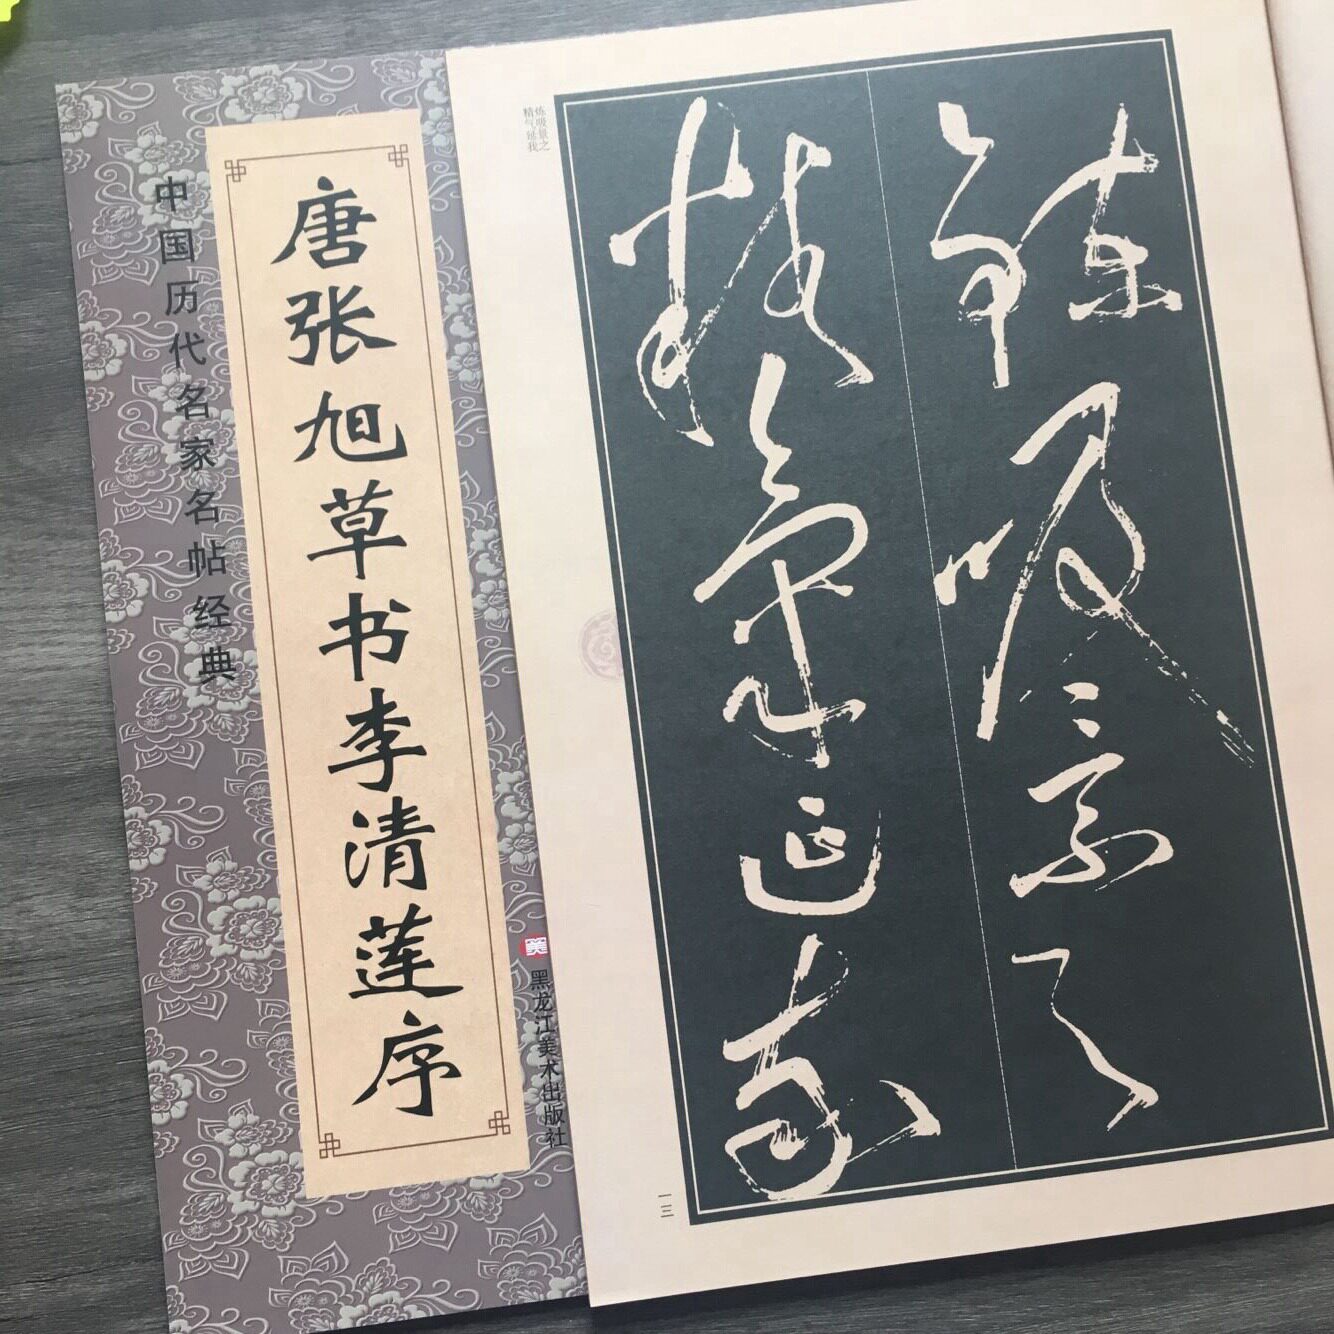 中国历代名家名帖经典
唐张旭草书李清莲序
美
黑龙江美术出版社
炼吸景之
精气延我
一三
炼吸景之
精气延我